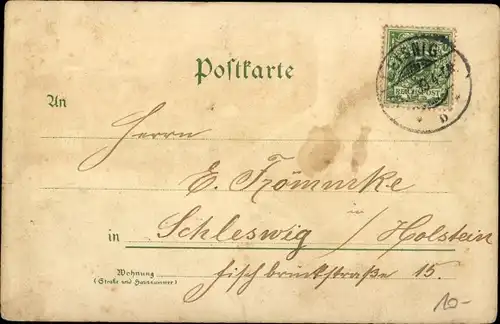 Postkarte
An
Herrn
E. Frömmke
in Schleswig / Holstein
Wohnung
(Straße und Hausnummer)
fischbrückstraße 15.
REICHSPOST
10-